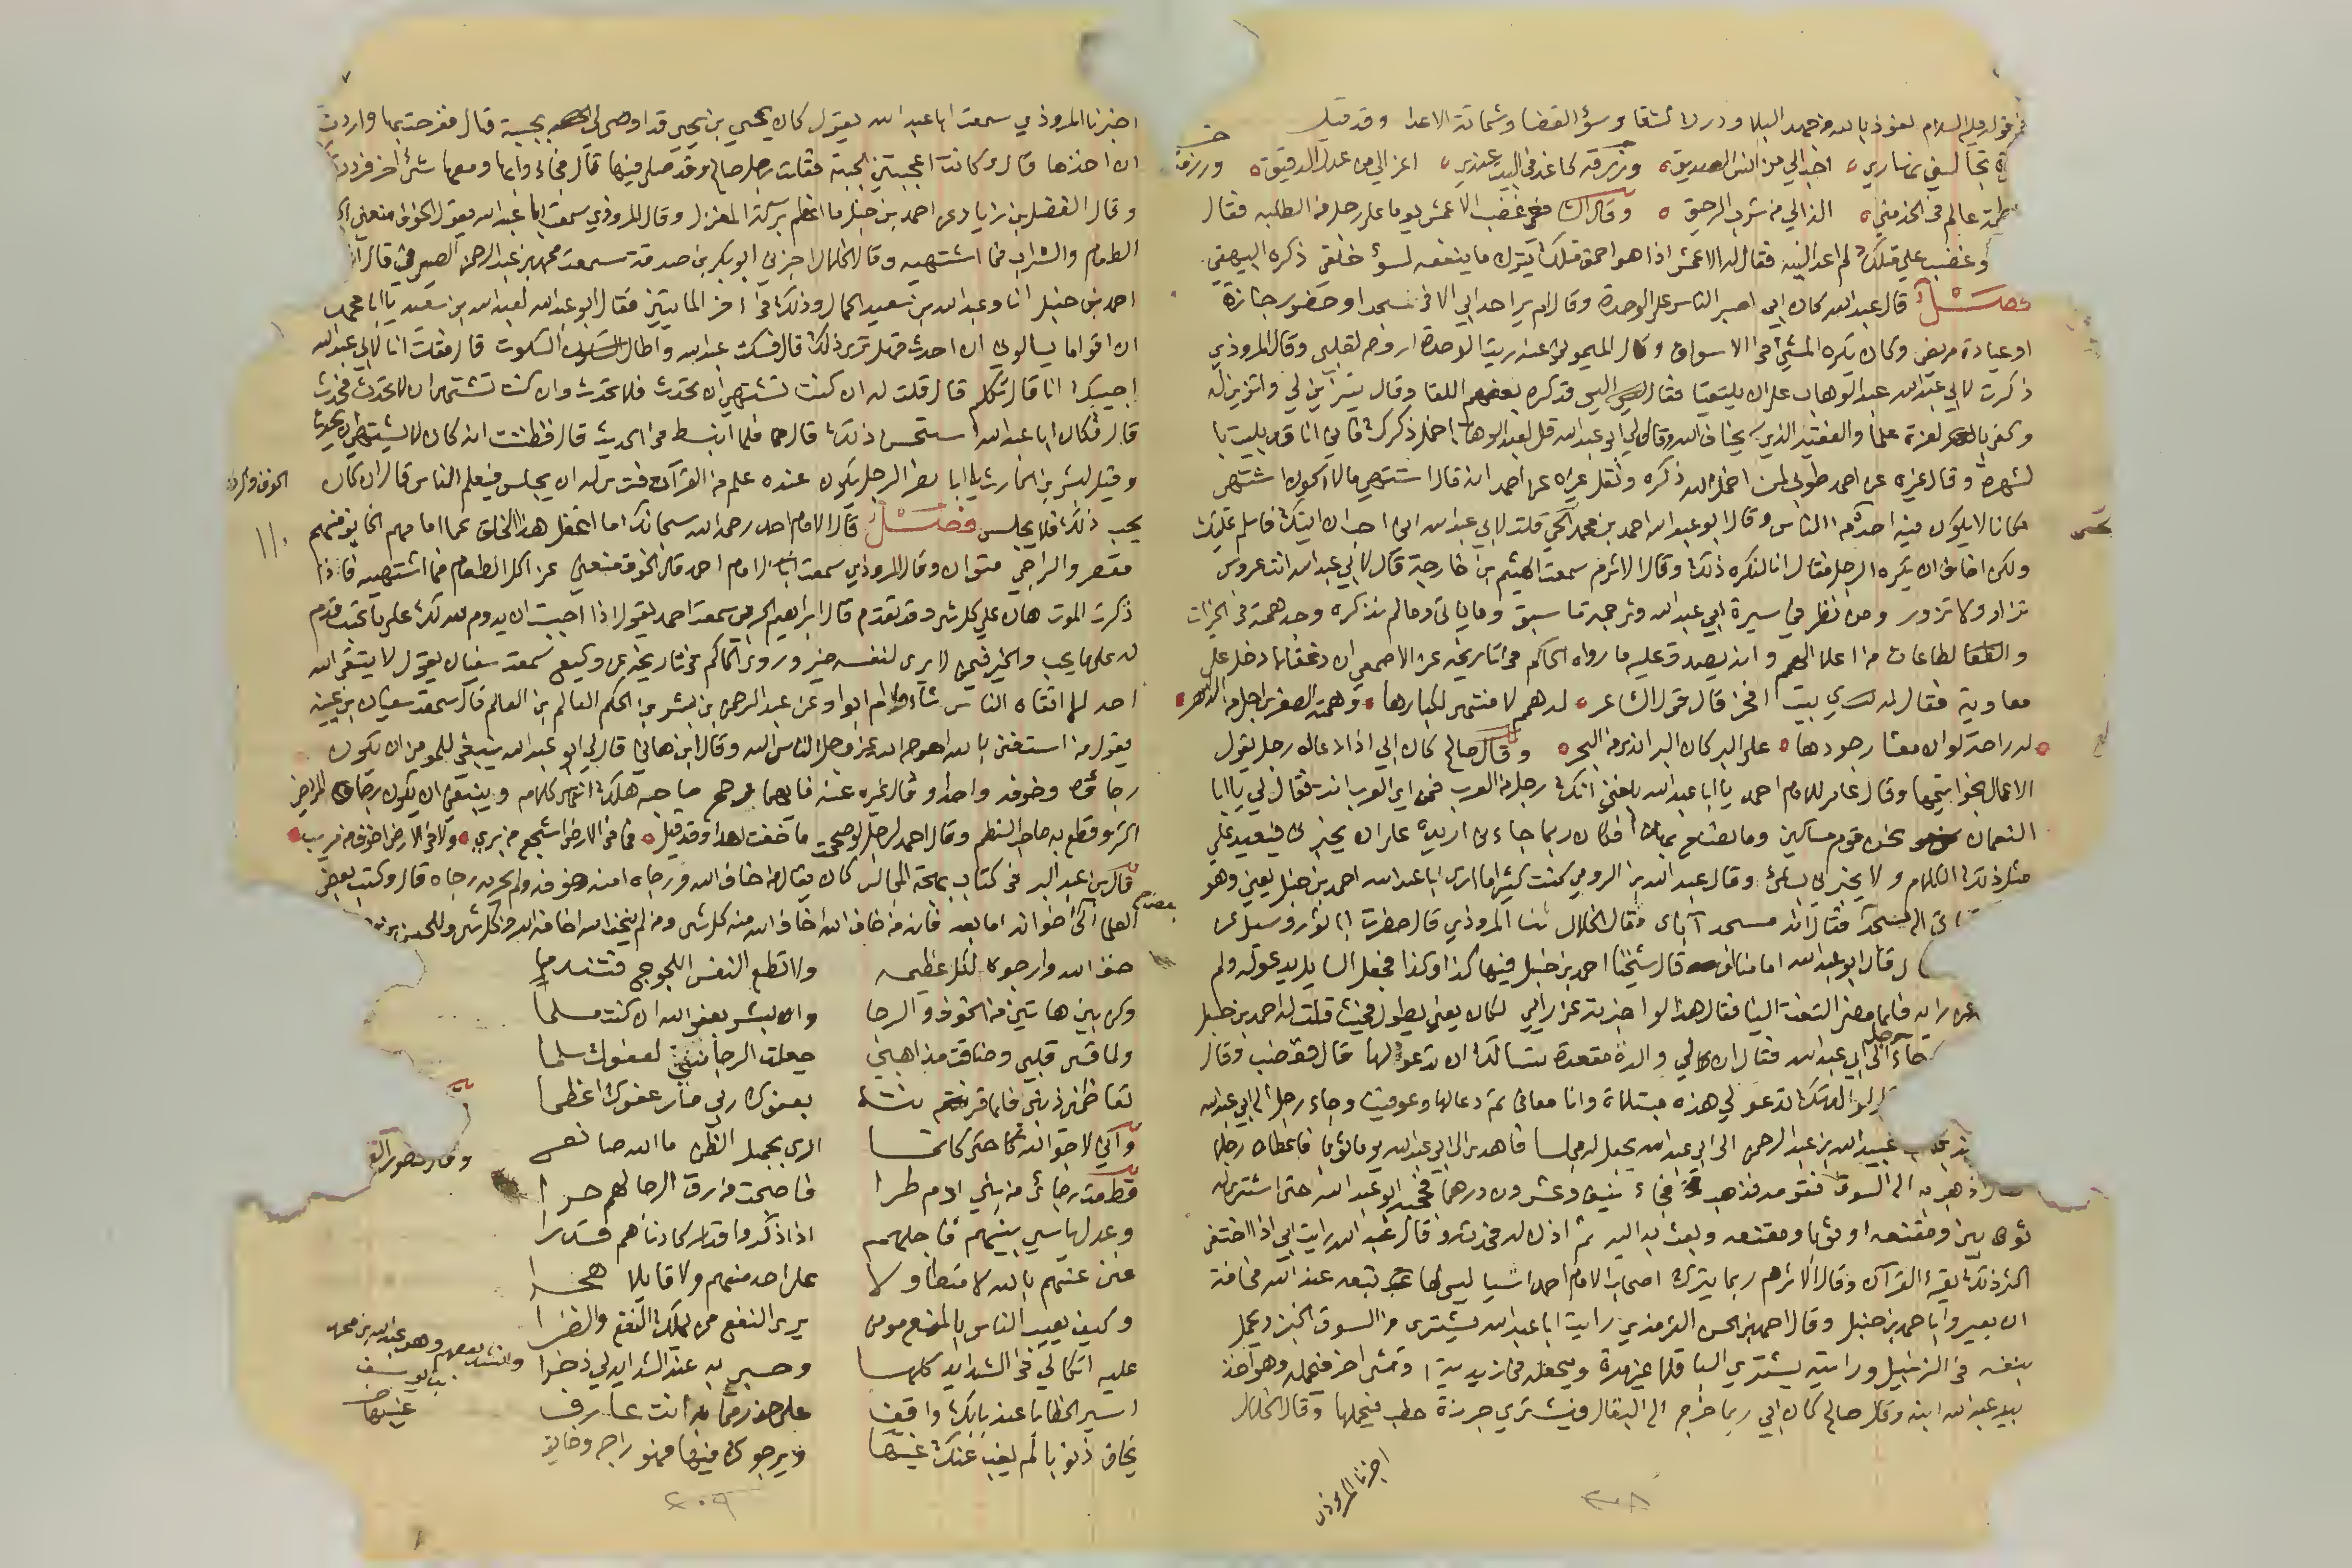 في قوله عليه السلام نعوذ بالله من جهد البلاء ودرك الشقا وسؤ القضا وشماتة الاعدا وقد قيل
احب الي من انس الصديق ورزقه كاغد في البيت عندي اعز الي من عدل الدقيق
عالم في الخد مني الذ الي من شرب الرحيق وقال غضب الاعمش يوما على رجل من الطلبة فقال
وغضب علي قبلك لم اعد اليه فقال له الاعمش اذا هو احمق مثلك يترك ما ينفعه لسؤ خلقي ذكره البيهقي
فصل قال عبد الله كان ابي اصبر الناس على الوحدة وقال لم ير احد ابي الا في مسجد او حضور جنازة
او عيادة مريض وكان يكره المشي في الاسواق وقال الميموني عنه رايت الوحدة اروح لقلبي وقال المروذي
ذكرت لابي عبد الله عبد الوهاب على ان يلتقيا فقال اليس قد كره بعضهم اللقا وقال يتزين لي واتزين له
وكفى بالعزلة علما والفقيه الذي يخاف الله وقال لي ابي عبد الله قل لعبد الوهاب اخمل ذكرك فاني انا قد بليت بالشهرة
وقال غيره عن احمد طوبى لمن اخمل الله ذكره ونقل غيره عن احمد انه قال اشتهي ما لا يكون اشتهي
مكانا لا يكون فيه احد من الناس وقال ابو عبد الله احمد بن محمد قلت لابي عبد الله اني احب ان اتيك فاسلم عليك
ولكن اخاف ان تكره الرجل فقال انا لنكره ذلك وقال الاثرم سمعت الهيثم بن خارجة قال لابي عبد الله انت عروس
تزار ولا تزور ومن نظر في سيرة ابي عبد الله وترجمته ما سبق وما ياتي وما لم نذكره وجد همته في الخيرات
والطاعات من اعلا الهمم وانه يصدق عليه ما رواه الحاكم في تاريخه عن الاصمعي ان دغفلا دخل على
معاوية فقال له اي بيت افخر قال قول الشاعر له همم لا منتهى لكبارها وهمته الصغرى اجل من الدهر
له راحة لو ان معشار جودها على البر كان البر اندى من البحر وقال صالح كان ابي اذا دعا له رجل يقول
الاعمال بخواتيمها وقال عامر للامام احمد يا ابا عبد الله بلغني انك رجل من العرب فمن اي العرب انت فقال لي يا ابا
النعمان نحن قوم مساكين وما نصنع بهذا فكان ربما جاءني اريده على ان يخبرني فيعيد علي
مثل ذلك الكلام ولا يخبرني بشئ وقال عبد الله بن الرومي كنت كثيرا ما ارى ابا عبد الله احمد بن حنبل يعني وهو
المسجد فقال انه مسجد آبائي وقال الخلال ثنا المروذي قال حضرت ابا ثور وسئل عن
فقال ابو عبد الله امامنا او قال شيخنا احمد بن حنبل فيها كذا وكذا فجعل السايل يدعو له ولم
عن رايه فلما مضى التفت الينا فقال هذا لو اخبرته عن رايي لكان يعني يطول فحيث قلت له احمد بن حنبل
جاء رجل الى ابي عبد الله فقال ان لي والدة مقعدة تسالك ان تدعو لها قال فغضب وقال
لوالدتك تدعو لي هذه مبتلاة وانا معافى ثم دعا لها وعوفيت وجاء رجل الى ابي عبد الله
عبيد الله بن عبد الرحمن الى ابي عبد الله يجعل له مجلسا فاهدى الى ابي عبد الله يوما ثوبا فاعطاه رجلا
اذهب به الى السوق فقومه فذهب فجاء نيف وعشرون درهما فحجبه ابو عبد الله حتى اشترى له
ثوبين ومقنعة او ثوبا ومقنعة وبعث به اليه ثم اذن له فحدثه وقال عبد الله رايت ابي اذا اختفى
اكثر ذلك يقرئ القرآن وقال الاثرم ربما يترك اصحاب الامام احمد اشيا ليس لها تبعة عند الله مخافة
ان يعيروا باحمد بن حنبل وقال احمد بن الحسن الترمذي رايت ابا عبد الله يشتري من السوق الخبز ويحمل
بنفسه في الزنبيل ورايته يشتري الباقلا غير مرة ويجعله في زبدية او شئ اخر فيحمله وهو آخذ
بيد عبد الله ابنه وقال صالح كان ابي ربما خرج الى البقال فيشتري جرزة حطب فيحملها وقال الخلال
اخبرنا المروذي
٢٠٨
اخبرنا المروذي سمعت ابا عبد الله يقول كان يحيى بن يحيى قد اوصى لي بجبته قال ففرحت بها واردت
ان اخذها قال وكانت اعجبتني الجبة فقلت رجل صالح وقد صلى فيها قال فجاؤا بها ومعها شئ اخر فرددت
وقال الفضل بن زياد عن احمد بن حنبل ما اعظم بركة المغزل وقال المروذي سمعت ابا عبد الله يقول الخوف منعني
الطعام والشراب فما اشتهيه وقال الخلال اخبرني ابو بكر بن صدقة سمعت محمد بن عبد الرحمن الصيرفي قال
احمد بن حنبل انا وعبد الله بن سعيد الحمال وذلك في اخر المايتين فقال ابو عبد الله لعبد الله بن سعيد يا ابا محمد
ان اقواما يسالوني ان احدث فهل ترى ذلك قال فسكت عبد الله واطال السكوت قال فقلت انا لابي عبد الله
اجيبك انا قال تكلم قال قلت له ان كنت تشتهي ان تحدث فلا تحدث وان كنت تشتهي ان لا تحدث فحدث
قال فكان ابا عبد الله استحسن ذلك قال فلما انبسط في الحديث قال فظننت انه كان لا يشتهي ان يحدث
وقيل لبشر بن الحارث يا ابا نصر الرجل يكون عنده علم من القرآن فترى له ان يجلس فيعلم الناس قال ان كان
يحب ذلك فلا يجلس فصل قال الامام احمد رحمه الله سبحانك ما اغفل هذا الخلق عما امامهم الخايف منهم
مقصر والراجي متوان وقال المروذي سمعت الامام احمد قال الخوف منعني عن اكل الطعام فما اشتهيه فاذا
ذكرت الموت هان علي كل شئ وقد تقدم قال ابراهيم الحربي سمعت احمد يقول اذا احببت ان يدوم الله لك على ما تحب فدم
له على ما يحب والخير فيمن لا يرى لنفسه خيرا وروى الحاكم في تاريخه عن وكيع سمعت سفيان يقول لا يتقي الله
احد الا اتقاه الناس شاؤا ام ابوا وعن عبد الرحمن بن بشر بن الحكم العالم بن العالم قال سمعت سفيان بن عيينة
يقول من استغنى بالله احوج الله عز وجل الناس اليه وقال ابن هاني قال لي ابو عبد الله ينبغي للمومن ان يكون
رجاؤه وخوفه واحدا وقال غيره عنه فايهما رجح صاحبه هلك انتهى كلامه وينبغي ان يكون رجاء المريض
اكثر وقطع به صاحب النظم وقال احمد لرجل لو صححت ما خفت احدا وقد قيل فما في الارض اشجع من بري ولا في الارض اخوف من مريب
قال بن عبد البر في كتاب بهجة المجالس كان يقال من خاف الله ورجاه امنه خوفه ولم يحرمه رجاه قال وكتب بعض
العلماء الى اخوانه اما بعد فانه من خاف الله اخاف الله منه كل شئ ومن لم يخف الله اخافه الله من كل شئ وللحسين بن
خف الله وارجوه لكل عظيمة ولا تطع النفس اللجوج فتندما
وكن بين هاتين من الخوف والرجا وابشر بعفو الله ان كنت مسلما
ولما قسى قلبي وضاقت مذاهبي جعلت الرجا مني لعفوك سلما
تعاظمني ذنبي فلما قرنته بعفوك ربي كان عفوك اعظما
واني لارجو الله حتى كانما ارى بجميل الظن ما الله صانع
قطعت رجائي من بني ادم طرا فاصبحت من رق الرجا لهم حرا
وعدل ياسي بينهم فاجلهم اذا ذكروا قدرا كادناهم قدرا
غنى عنهم بالله لا متطاولا على احد منهم ولا قايلا هجرا
وكيف يعيب الناس بالمنع مومن يرى النفع ممن يملك النفع والضرا
عليه اتكالي في الشدايد كلها وحسبي به عند الشدايد لي ذخرا
اسير الخطايا عند بابك واقف على حذر مما به انت عارف
يخاف ذنوبا لم يغب عنك غيبها ويرجوك فيها فهو راج وخايف
الخوف والرجا
وانشد بعضهم وهو عبد الله بن محمد
بن يوسف
٢٠٩